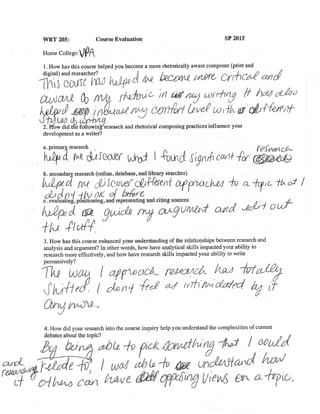 WRT 205: Course Evaluation SP 2015
Home College: VPA
1. How has this course helped you become a more rhetorically aware composer (print and
digital) and researcher?
This course has helped me become more critical and
aware of my rhetoric in my writing It has also
helped increase my comfort level with different
styles of writing.
2. How did the following research and rhetorical composing practices influence your
development as a writer?
a. primary research
helped me discover what I found significant for research
b. secondary research (online, database, and library searches)
helped me discover different approaches to a topic that I
didn't think of before
c. evaluating, positioning, and representing and citing sources
helped guide my argument and edit out
the fluff.
3. How has this course enhanced your understanding of the relationships between research and
analysis and argument? In other words, how have analytical skills impacted your ability to
research more effectively, and how have research skills impacted your ability to write
persuasively?
The way I approach research has totally
shifted. I don't feel as intimidated by it
anymore.
4. How did your research into the course inquiry help you understand the complexities of current
debates about the topic?
By being able to pick something that I could
relate to, and research it I was able to understand how
others can have opposing views on a topic.